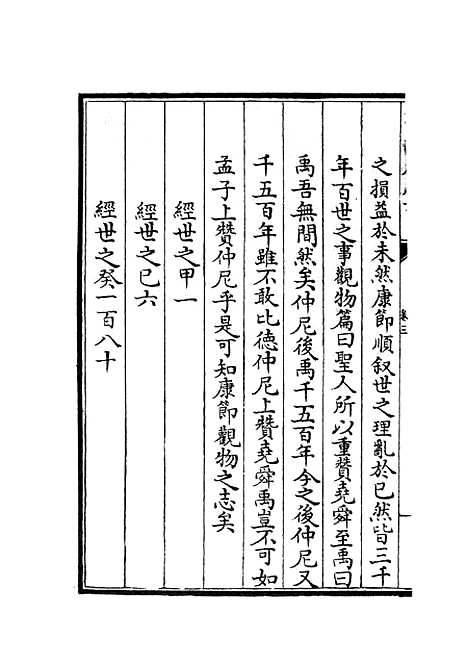 之損益於未然康節順叙世之理亂於已然皆三千
年百世之事觀物篇曰聖人所以重贊堯舜至禹曰
禹吾無間然矣仲尼後禹千五百年今之後仲尼又
千五百年雖不敢比德仲尼上贊堯舜禹豈不可如
孟子上贊仲尼乎是可知康節觀物之志矣
經世之甲一
經世之巳六
經世之癸一百八十